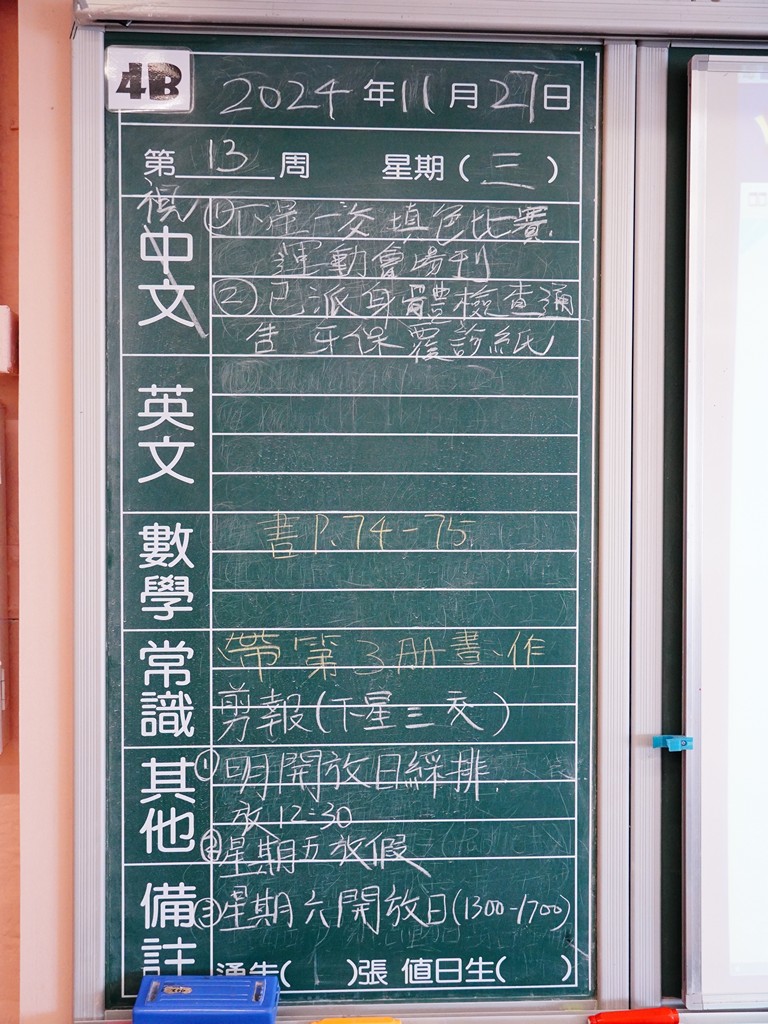 4B
2024年11月27日
第13周 星期(三)
視
中文
①下星一交填色比賽
運動會場刊
②已派身體檢查通
告 牙保覆診紙
英文
數學
書P.74-75
常識
帶第3冊書、作
剪報(下星三交)
其他
①明開放日綵排
放12:30
②星期五放假
備註
③星期六開放日(1300-1700)
通告( )張 值日生( )